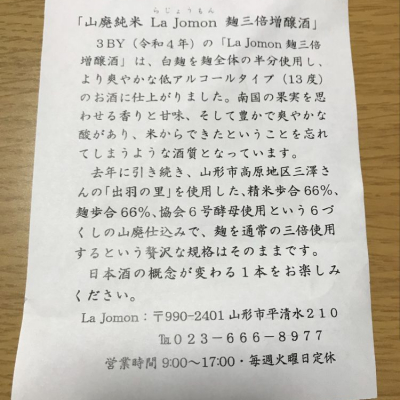 らじょうもん
「山廃純米 La Jomon 麹三倍増醸酒」
３BY（令和４年）の「La Jomon 麹三倍
増醸酒」は、白麹を麹全体の半分使用し、
より爽やかな低アルコールタイプ（13度）
のお酒に仕上がりました。南国の果実を思
わせる香りと甘味、そして豊かで爽やかな
酸があり、米からできたということを忘れ
てしまうような酒質となっています。
去年に引き続き、山形市高原地区三澤さ
んの「出羽の里」を使用した、精米歩合66%、
麹歩合66%、協会６号酵母使用という６づ
くしの山廃仕込みで、麹を通常の三倍使用
するという贅沢な規格はそのままです。
日本酒の概念が変わる１本をお楽しみ
ください。
La Jomon：〒990-2401 山形市平清水２１０
℡０２３－６６６－８９７７
営業時間 9:00～17:00・毎週火曜日定休